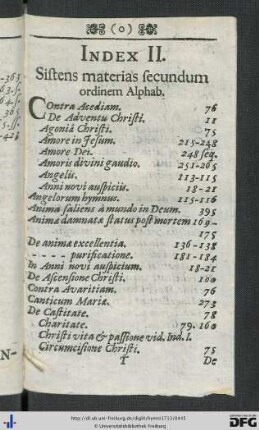 (o)
INDEX II.
Sistens materias secundum
ordinem Alphab.
Contra Acediam. 76
De Adventu Christi. 11
Agoniâ Christi. 75
Amore in Jesum. 215-248
Amore Dei. 248 seq.
Amoris divini gaudio. 251-265
Angelis. 113-115
Anni novi auspiciis. 18-21
Angelorum hymnus. 115-116
Anima saliens à mundo in Deum. 395
Animæ damnatæ status post mortem 169-
175
De animæ excellentia. 136-138
- - - - purificatione. 181-184
In Anni novi auspicium. 18-21
De Ascensione Christi. 100
Contra Avaritiam. 76
Canticum Mariæ. 273
De Castitate. 78
Charitate. 79. 160
Christi vita & passione vid. Ind. I.
Circumcisione Christi. 75
T De
-363
N-
http://dl.ub.uni-freiburg.de/diglit/hymni1733/0445
© Universitätsbibliothek Freiburg
gefördert durch die
DFG